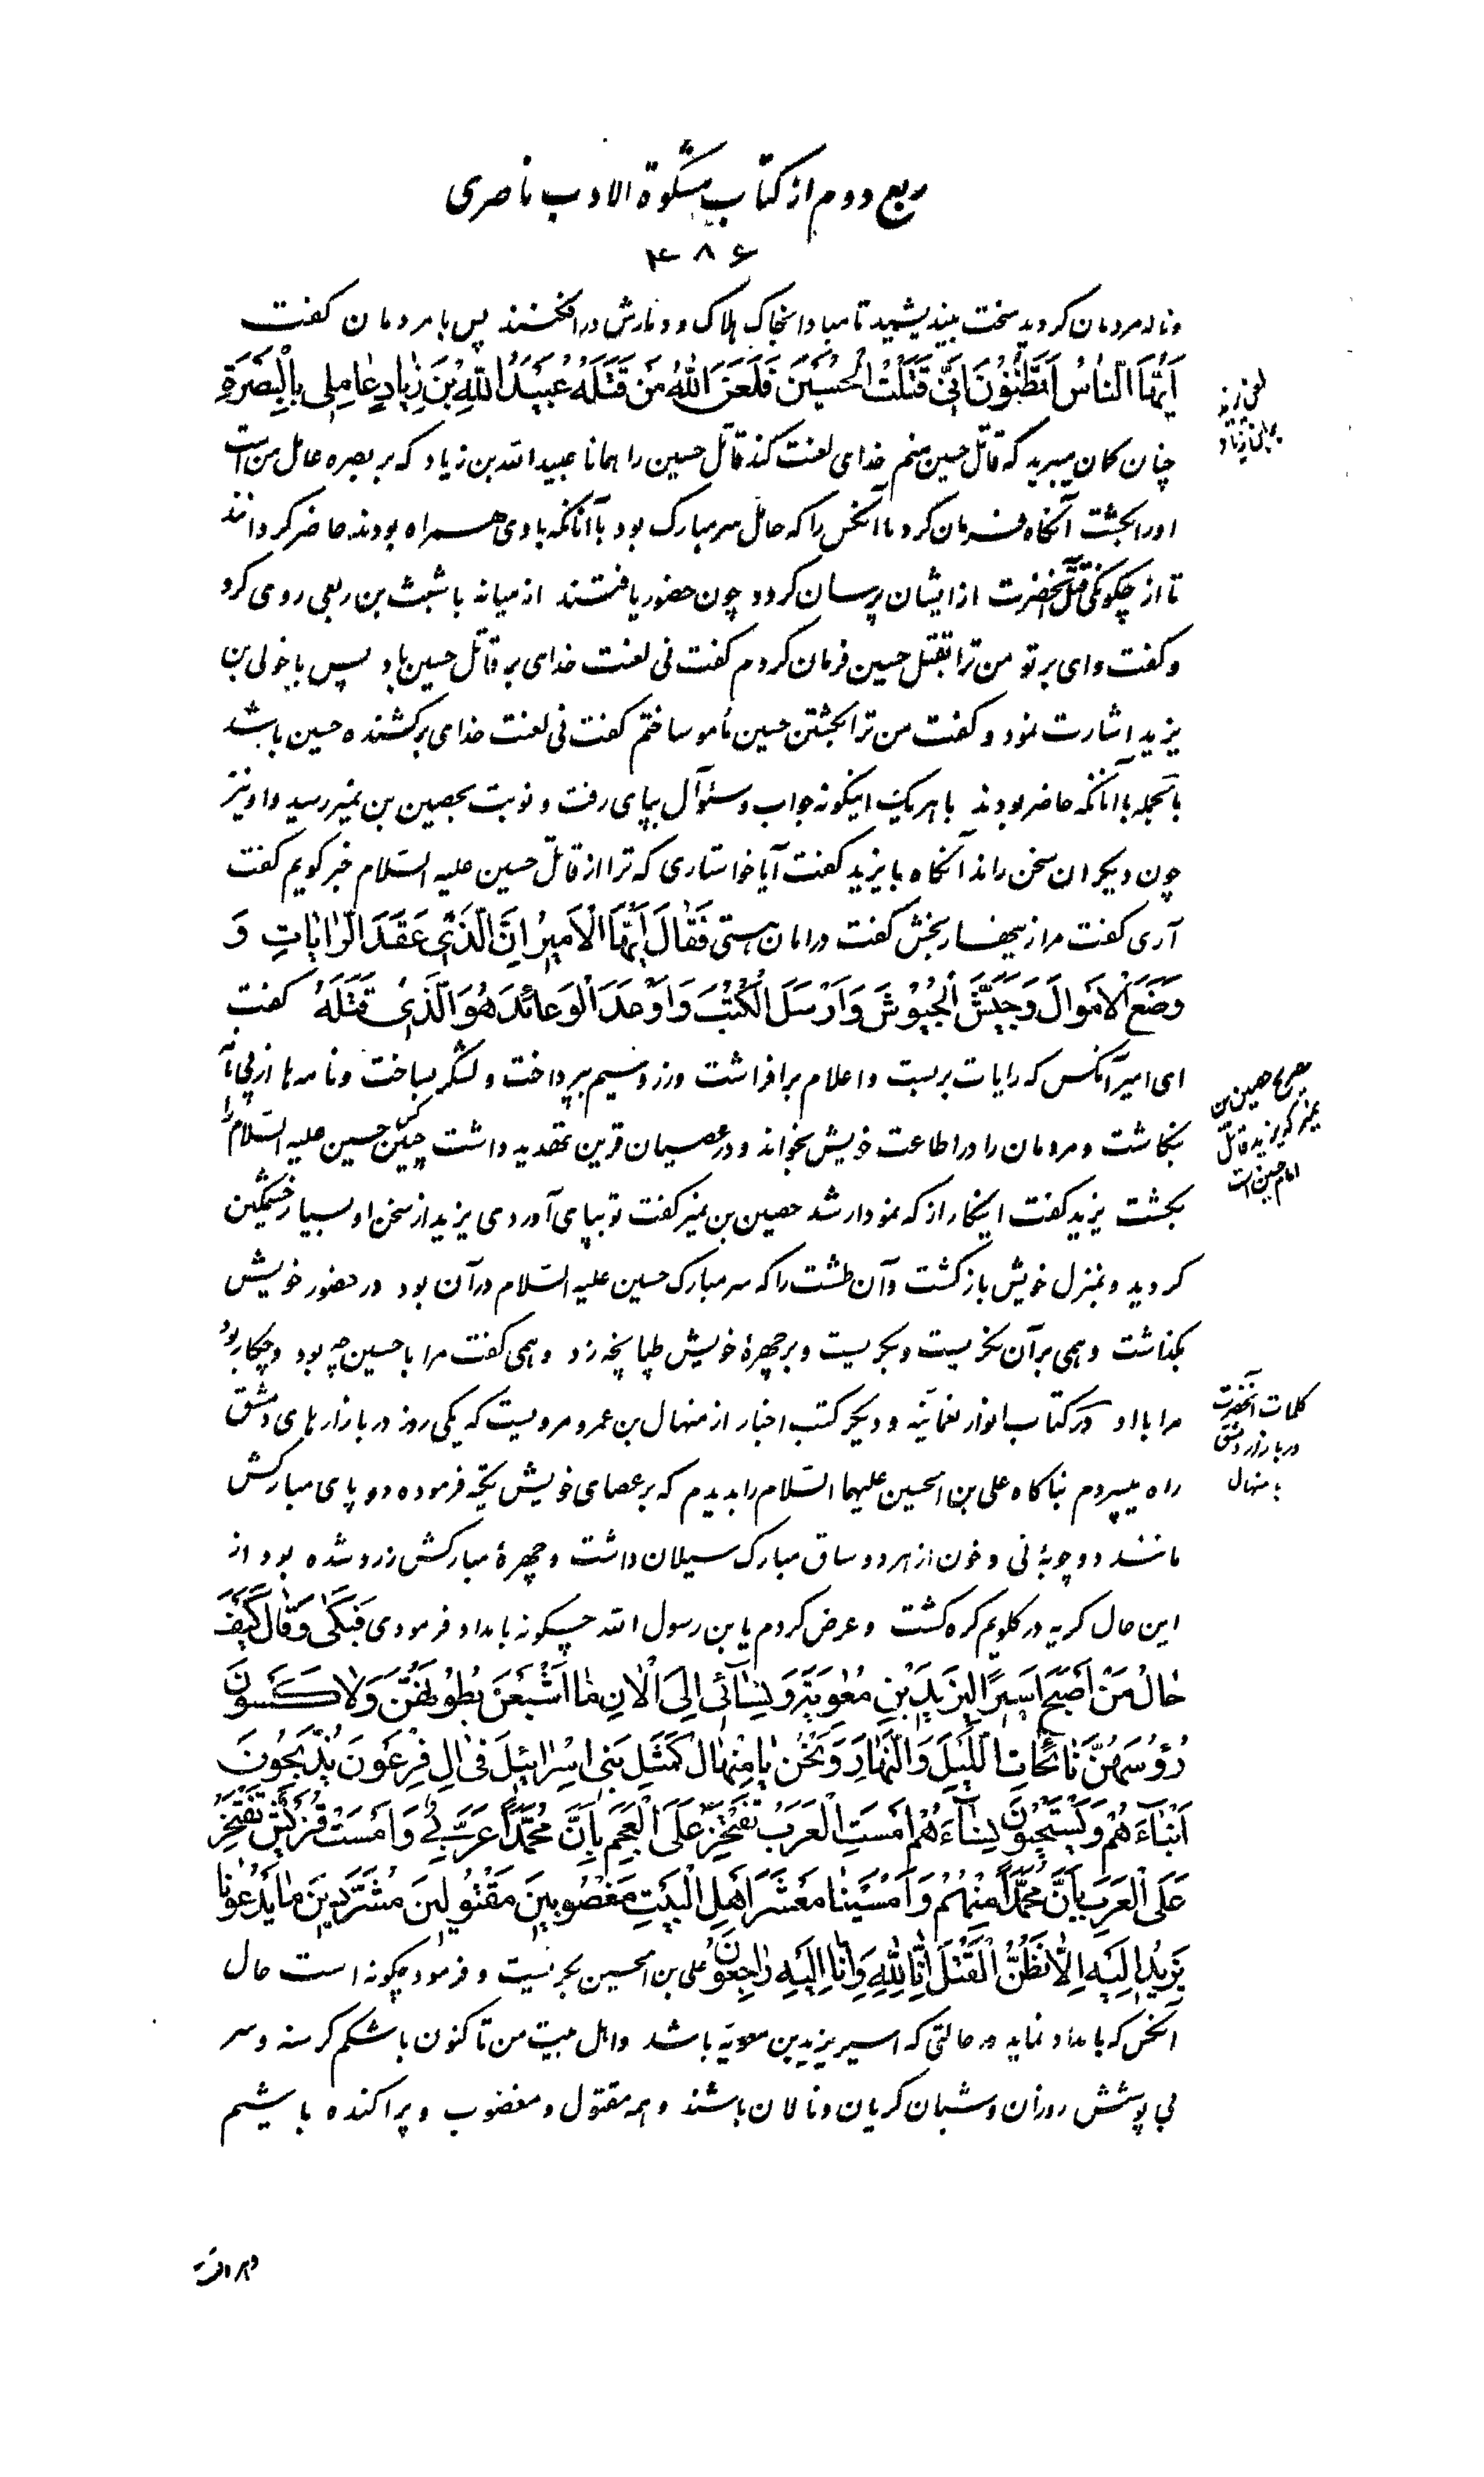 ربع دوم از کتاب مشکوة الادب ناصری
۳۸۶
و ناله مردمان کردید سخت بیندیشید تا مبادا بخاک هلاک و دمارش درافکنند پس با مردمان کفت
اَیُّهَا النّاسُ اَتَظُنُّونَ اَنّی قَتَلْتُ الْحُسَیْنَ فَلَعَنَ اللّٰهُ مَنْ قَتَلَهُ عُبَیْدُ اللّٰهِ بْنُ زِیادٍ عامِلی بِالْبَصْرَةِ
چنان کمان میبرید که قاتل حسین منم خدای لعنت کند قاتل حسین را همانا عبید الله بن زیاد که بر بصره عامل من است
او را بکشت آنکاه فرمان کرد تا آنکس را که حامل سر مبارک بود با آنانکه با وی همراه بودند حاضر کردانند
تا از چکونکی قتل آنحضرت از ایشان پرسان کردد چون حضور یافتند از میانه با شبث بن ربعی روی کرد
و کفت وای بر تو من ترا بقتل حسین فرمان کردم کفت نی لعنت خدای بر قاتل حسین باد پس با خولی بن
یزید اشارت نمود و کفت من ترا بکشتن حسین مأمور ساختم کفت نی لعنت خدای بر کشنده حسین باشد
بالجمله با آنانکه حاضر بودند با هر یک اینکونه جواب و سئوال بپای رفت و نوبت بحصین بن نمیر رسید و او نیز
چون دیکران سخن راند آنکاه با یزید کفت آیا خواستاری که ترا از قاتل حسین علیه السّلام خبر کویم کفت
آری کفت مرا زینهار بخش کفت در امان هستی فَقالَ اَیُّهَا الْاَمیرُ اِنَّ الَّذی عَقَدَ الرّایاتِ وَ
وَضَعَ الْاَمْوالَ وَ جَیَّشَ الْجُیُوشَ وَ اَرْسَلَ الْکُتُبَ وَ اَوْعَدَ الْوَعائِدَ هُوَ الَّذی قَتَلَهُ کفت
ای امیر آنکس که رایات بربست و اعلام برافراشت و زر و سیم بپرداخت و لشکر بساخت و نامه ها از پی نامه
بنکاشت و مردمان را در اطاعت خویش بخواند و در عصیان قرین تهدید داشت همین کس حسین علیه السّلام را
بکشت یزید کفت اینکار از که نمودار شد حصین بن نمیر کفت تو بپای آوردی یزید از سخن او بسیار خشمکین
کردید و بمنزل خویش بازکشت و آن طشت را که سر مبارک حسین علیه السّلام در آن بود در حضور خویش
بکذاشت و همی بر آن نکریست و بکریست و بر چهرهٔ خویش طپانچه زد و همی کفت مرا با حسین چه بود و چکار بود
مرا با او در کتاب انوار نعمانیّه و دیکر کتب اخبار از منهال بن عمرو مرویست که یکی روز در بازارهای دمشق
راه میسپردم بناکاه علی بن الحسین علیهما السّلام را بدیدم که بر عصای خویش تکیه فرموده دو پای مبارکش
مانند دو چوبهٔ نی و خون از هر دو ساق مبارک سیلان داشت و چهرهٔ مبارکش زرد شده بود از
این حال کریه در کلویم کره کشت و عرض کردم یا بن رسول الله چکونه بامداد فرمودی فَبَکی وَ قالَ کَیْفَ
حالُ مَنْ اَصْبَحَ اَسیرًا لِیَزیدَ بْنِ مُعٰوِیَةَ وَ نِسآئی اِلَی الْاٰنِ مااَشْبَعْنَ بُطُونَهُنَّ وَلا کَسَوْنَ
رُؤُسَهُنَّ نائِحاتٍ اللَّیْلَ وَ النَّهارَ وَ نَحْنُ یا مِنْهالُ کَمَثَلِ بَنی اِسْرائیلَ فی اٰلِ فِرْعَوْنَ یُذَبِّحُونَ
اَبْنآءَهُمْ وَ یَسْتَحْیُونَ نِسآءَهُمْ اَمْسَتِ الْعَرَبُ تَفْتَخِرُ عَلَی الْعَجَمِ بِاَنَّ مُحَمَّدًا عَرَبِیٌّ وَ اَمْسَتْ قُرَیْشٌ تَفْتَخِرُ
عَلَی الْعَرَبِ بِاَنَّ مُحَمَّدًا مِنْهُمْ وَ اَمْسَیْنا مَعْشَرَ اَهْلِ الْبَیْتِ مَغْصُوبینَ مَقْتُولینَ مُشَرَّدینَ ما یَدْعُونا
یَزیدُ اِلَیْهِ اِلّا نَظُنُّ الْقَتْلَ اِنّا لِلّٰهِ وَ اِنّا اِلَیْهِ راجِعُونَ علی بن الحسین بکریست و فرمود چکونه است حال
آنکس که بامداد نماید در حالتی که اسیر یزید بن معویة باشد و اهل بیت من تا کنون با شکم کرسنه و سر
بی پوشش روزان و شبان کریان و نالان باشند و همه مقتول و مغضوب و پراکنده باشیم
لعن یزید
بر ابن زیاد
حصین بن
نمیر که یزید قاتل
امام حسین است
کلمات آنحضرت
در بازار دمشق
با منهال